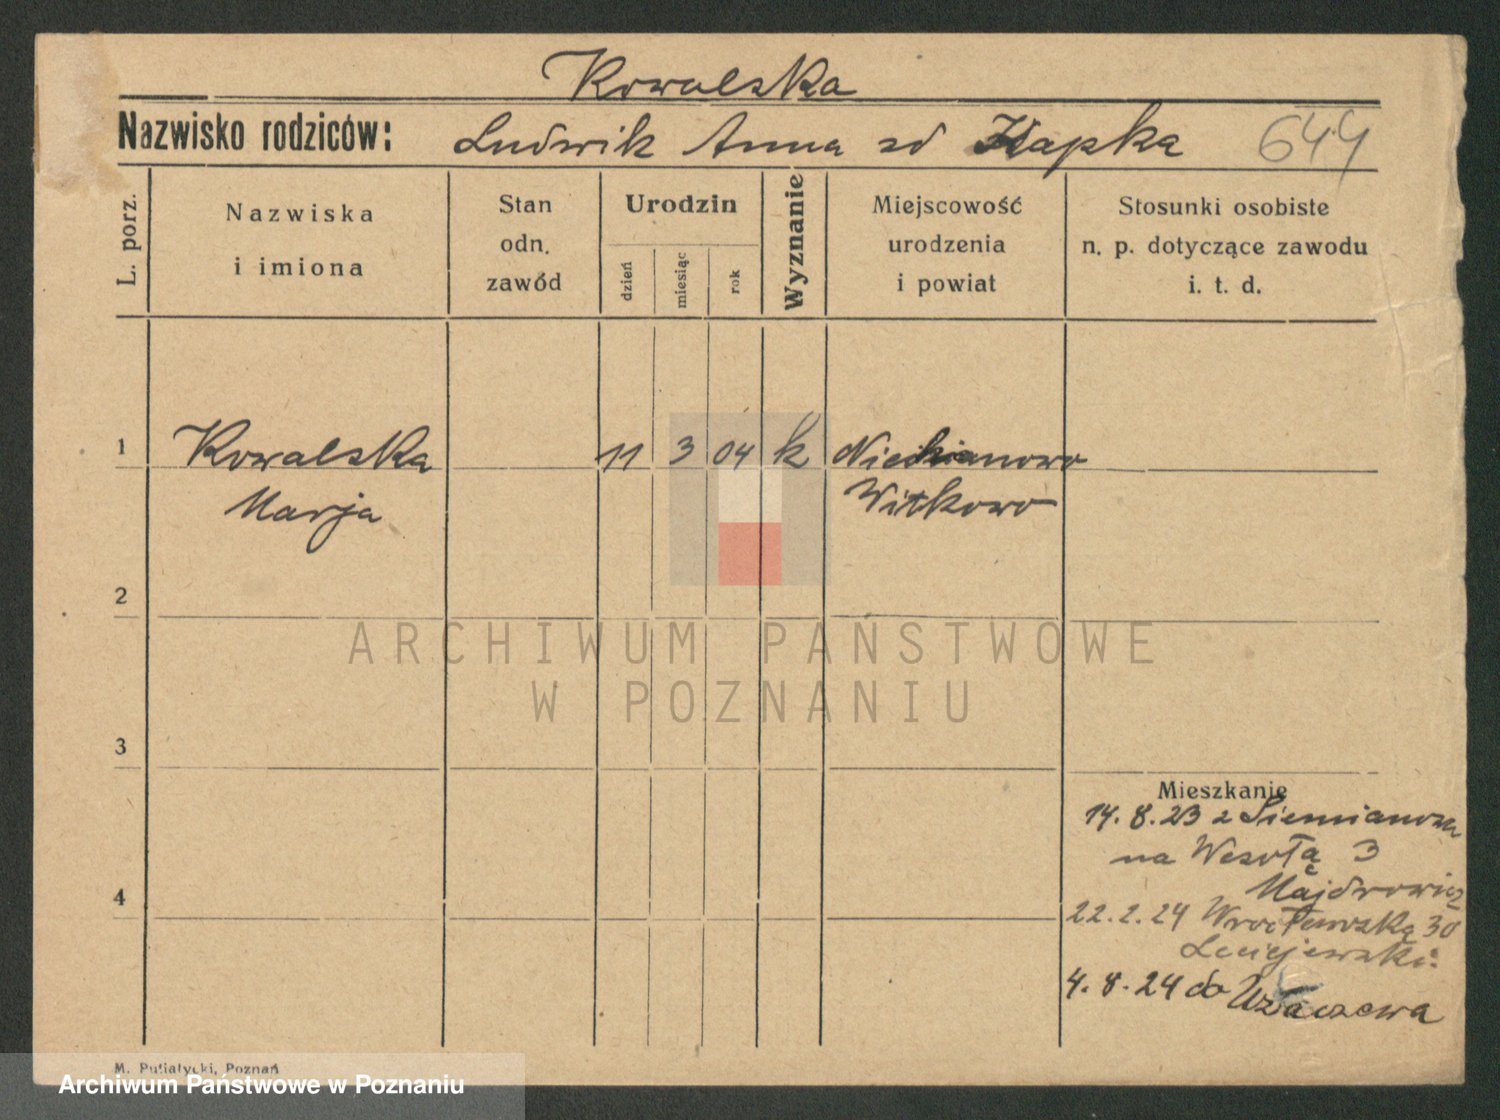 Kowalska
Nazwisko rodziców: Ludwik Anna zd Kłapka 644
L. porz.
Nazwiska i imiona
Stan odn. zawód
Urodzin
dzień
miesiąc
rok
Wyznanie
Miejscowość urodzenia i powiat
Stosunki osobiste n. p. dotyczące zawodu i. t. d.
1 Kowalska 11 3 04 k Niechanowo
Marja Witkowo
2
ARCHIWUM PAŃSTWOWE
W POZNANIU
3
Mieszkanie
14.8.23 z
na Wesołą 3
4
22.2.24 Wrocławską 30
4.8.24 do
M. Putiatycki, Poznań
Archiwum Państwowe w Poznaniu